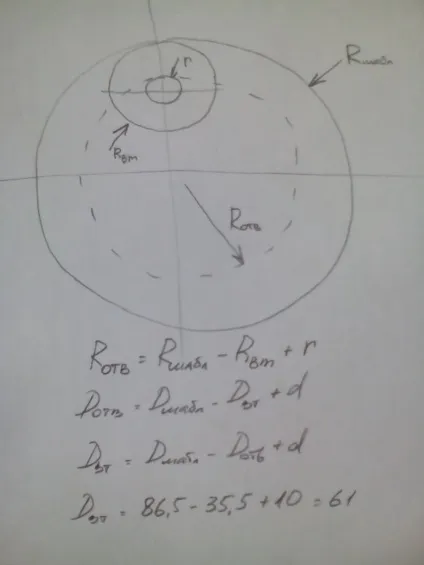 r
Rшабл
Rвт
Rотв
Rотв = Rшабл - Rвт + r
Dотв = Dшабл - Dвт + d
Dвт = Dшабл - Dотв + d
Dвт = 86,5 - 35,5 + 10 = 61